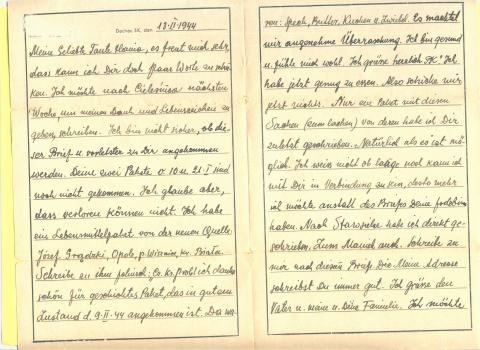 Dachau 3K, den 13-II-1944
Meine Geliebte Tante Mania, es freut mich sehr,
dass kann ich Dir doch paar Worte zu schi-
cken. Ich möchte nach Cieleśnica nächsten
Woche um meinen Dank und Lebenszeichen zu
geben, schreiben. Ich bin nicht sicher, ob die-
ser Brief u. vorletzter zu Dir angekommen
werden. Deine zwei Pakete v. 10 u. 21 I sind
noch nicht gekommen. Ich glaube aber,
dass verloren können nicht. Ich habe
ein Lebensmittelpaket von der neuen Quelle:
Józef Grądzki, Opole, p. Wisznice, kr. Biała.
Schreibe zu ihm folmend: Ew. Kr. Probl. ich danke
schön für geschicktes Paket, das in gutem
Zustand d. 9-II-44 angekommen ist. Da wa-
ren: Speck, Butter, Kuchen u. Zwiebel. Es machtet
mir angenehme Überraschung. Ich bin gesund
u. fühle mich wohl. Ich grüsse herzlich SK." Ich
habe jetzt genug zu essen. Also schicke mir
jetzt nichts. Nur ein Paket mit diesen
Sachen (zum lachen) von denen habe ich Dir
zuletzt geschrieben. Natürlich als es ist mö-
glich. Ich weiss nicht ob lange noch kann ich
mit Dir in Verbindung zu sein, desto mehr
ich möchte anstatt des Briefes Deine
haben. Nach habe ich direkt ge-
schrieben, zum auch. Schreibe zu
mir nach diesem Briefe. Die Meine Adresse
schreibst Du immer gut. Ich grüsse den
Vater u. meine u. Deine Familie. Ich möchte